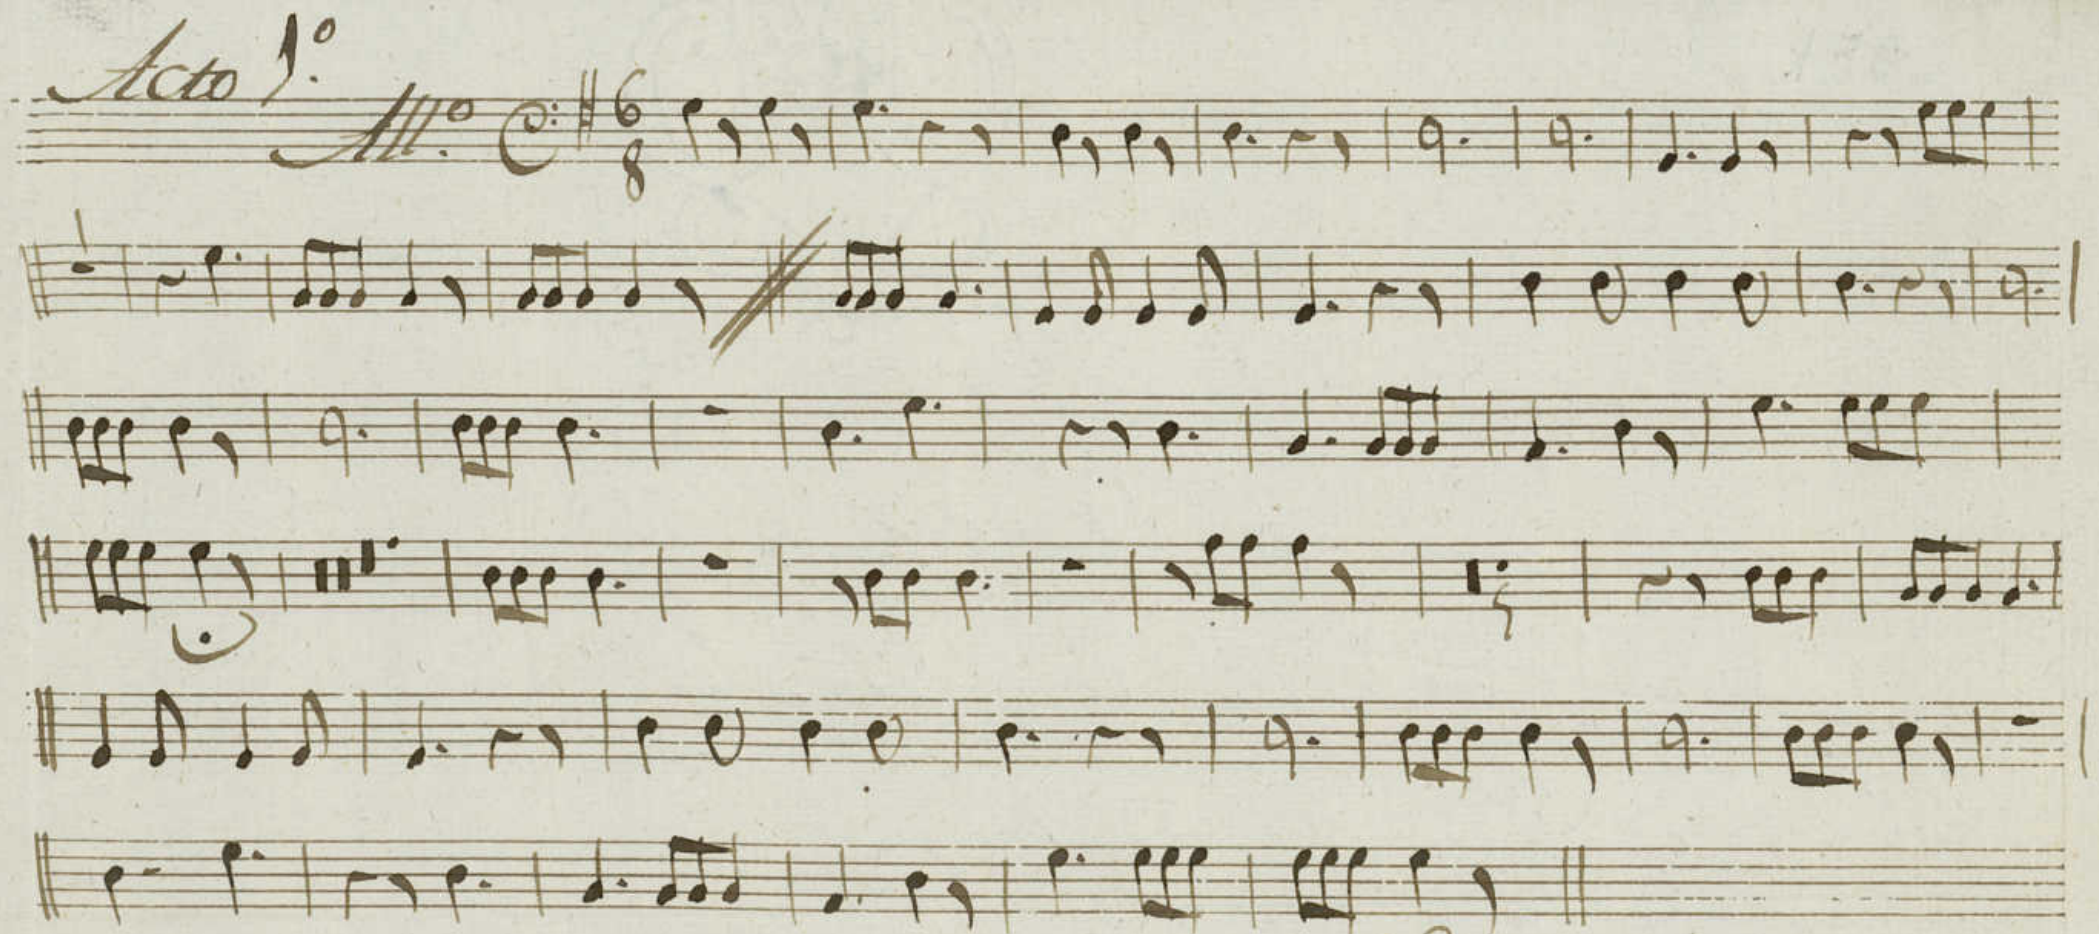 Acto 1º
All.º
6
8